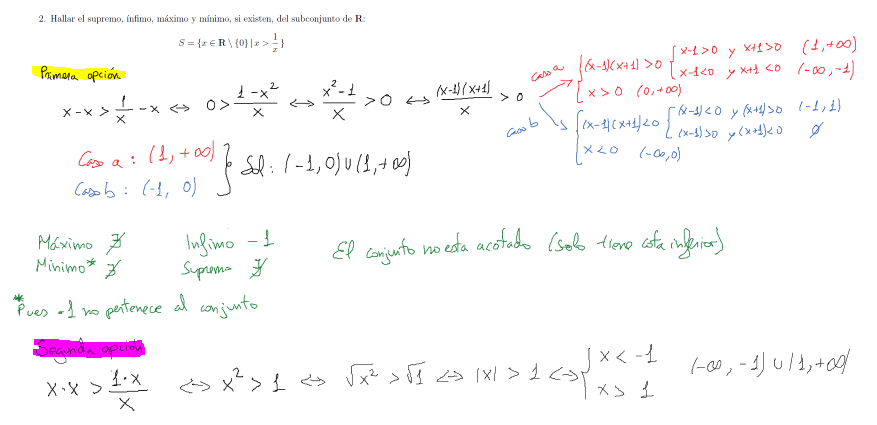 2. Hallar el supremo, ínfimo, máximo y mínimo, si existen, del subconjunto de R:
S = {x ∈ R \ {0} | x > 1/x}
Primera opción
x - x > 1/x - x ⇔ 0 > (1-x²)/x ⇔ (x²-1)/x > 0 ⇔ (x-1)(x+1)/x > 0
caso a { (x-1)(x+1) > 0 { x-1>0 y x+1>0 (1,+∞)
x-1<0 y x+1<0 (-∞,-1)
x > 0 (0,+∞)
caso b { (x-1)(x+1)<0 { (x-1)<0 y (x+1)>0 (-1,1)
(x-1)>0 y (x+1)<0 ∅
x<0 (-∞,0)
Caso a : (1,+∞)
Caso b : (-1, 0)
} Sol : (-1,0) ∪ (1,+∞)
Máximo ∄ Infimo -1 El conjunto no esta acotado (solo tiene cota inferior)
Mínimo* ∄ Supremo ∄
*Pues -1 no pertenece al conjunto
Segunda opción
x·x > 1·x/x ⇔ x² > 1 ⇔ √x² > √1 ⇔ |x| > 1 ⇔ { x < -1 (-∞,-1) ∪ (1,+∞)
x > 1